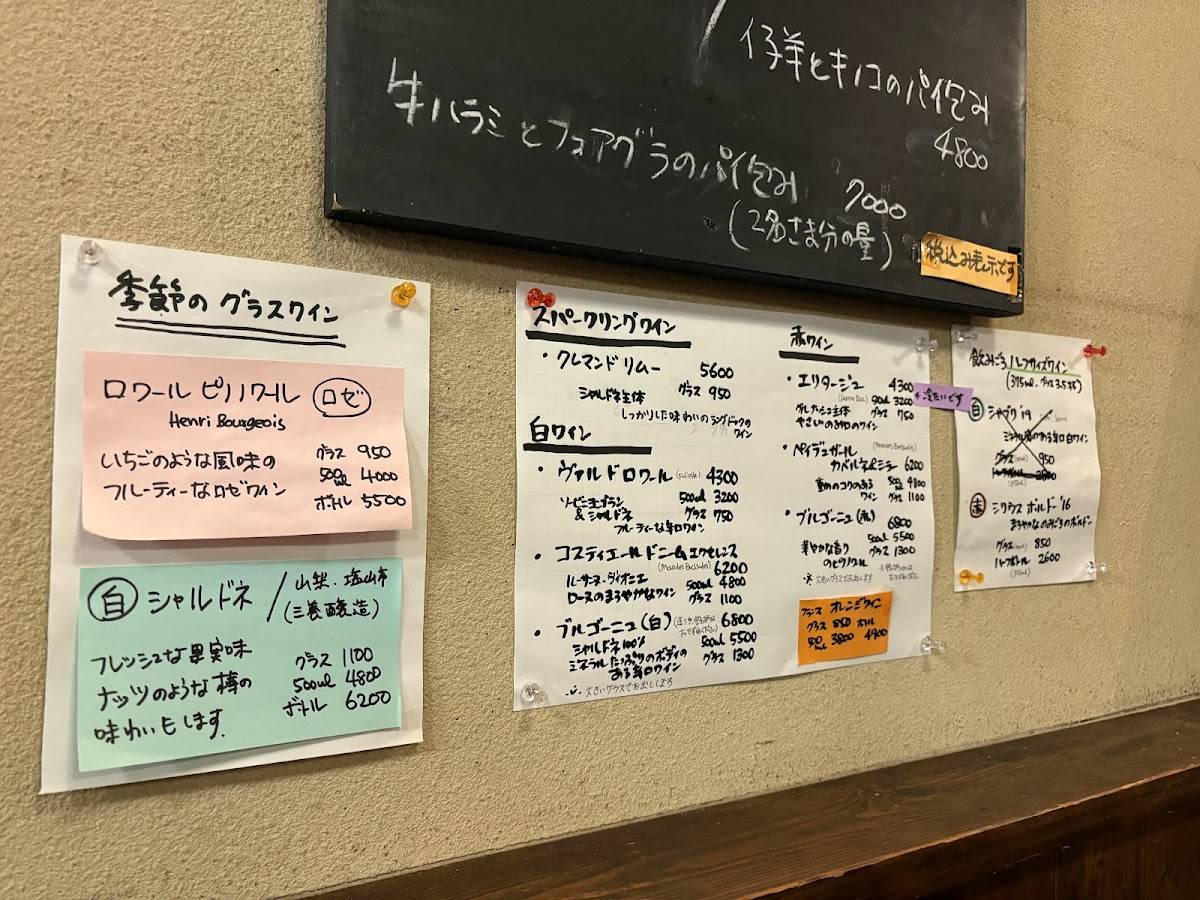 仔羊とキノコのパイ包み
4800
牛ハラミとフォアグラのパイ包み 7000
(2名さま分の量)
税込み表示です
季節のグラスワイン
ロワール ピノノワール ロゼ
Henri Bourgeois
いちごのような風味の
フルーティーなロゼワイン
グラス 950
500ml 4000
ボトル 5500
白 シャルドネ / 山梨.塩山市
(三養醸造)
フレッシュな果実味
ナッツのような樽の
味わいもします.
グラス 1100
500ml 4800
ボトル 6200
スパークリングワイン
・クレマンド リムー 5600
シャルドネ主体 グラス 950
しっかりした味わいのラングドックの
ワイン
白ワイン
・ヴァルドロワール 4300
ソービニヨンブラン 500ml 3200
&シャルドネ グラス 750
フルーティーな辛口ワイン
・コスティエールドニーム エクセレンス
6200
ルーサンヌ・ヴィオニエ 500ml 4800
ロースのまろやかなワイン グラス 1100
・ブルゴーニュ(白) 6800
シャルドネ100% 500ml 5500
ミネラルたっぷりのボディの グラス 1300
ある辛口ワイン
大きいグラスでお出しします
赤ワイン
・エリタージュ 4300
500ml 3200
グルナッシュ主体 グラス 750
やさしいお口のワイン
冷たいです
・ペイデュガール
カベルネ&シラー 6200
重めのコクのある 500ml 4800
ワイン グラス 1100
・ブルゴーニュ(赤) 6800
500ml 5500
華やかな香り グラス 1300
のピノノワール
大きいグラスでお出しします
フランス オレンジワイン
グラス 850 ボトル
500ml 3800 4900
飲みごろ ハーフサイズワイン
(375ml.グラス3.5杯)
白 シャブリ '19
ミネラル感のある辛口白ワイン
グラス 950
赤 シリウス ボルドー '16
まろやかなのみごろのボルドー
グラス 850
ハーフボトル 2600
(375ml)